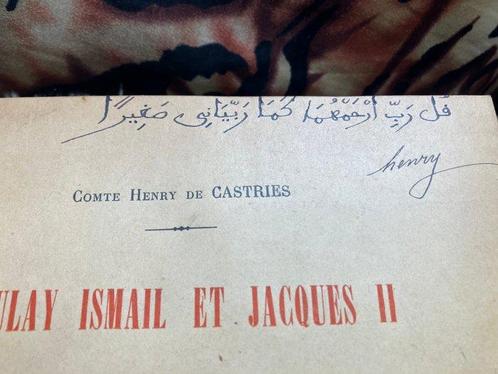 قُل رَبِّ ارْحَمْهُمَا كَمَا رَبَّيَانِي صَغِيرًا
henry
COMTE HENRY DE CASTRIES
ULAY ISMAIL ET JACQUES II